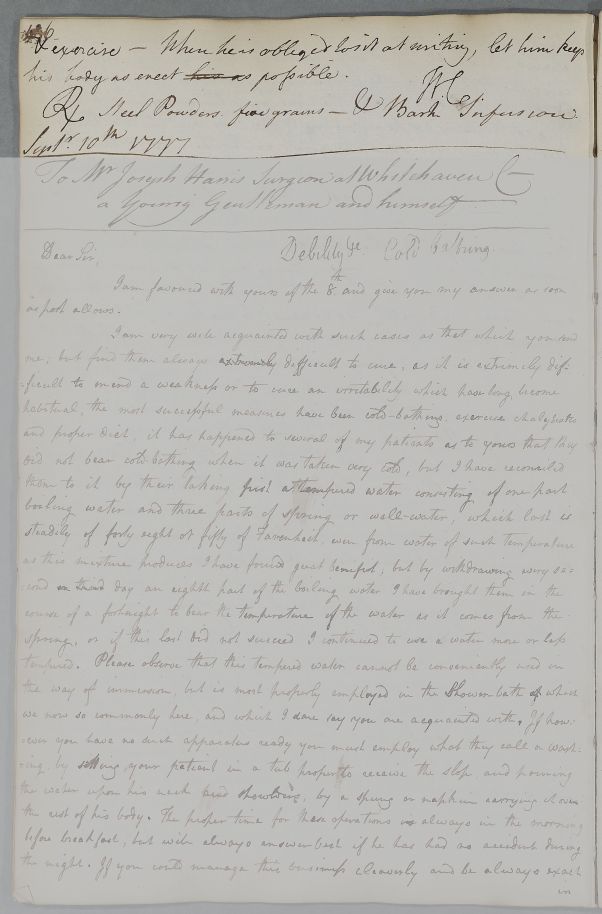 & exercise — When he is obliged to sit at writing, let him keep
his body as erect his as possible. WC
℞ Steel Powders five grains — & Bark Infusion
Septr. 10th 1777
To Mr Joseph Harris Surgeon at Whitehaven
a Young Gentleman and himself
Debility &c Cold bathing
Dear Sir,
I am favoured with yours of the 8th and give you my answer as soon
as post allows.
I am very well acquainted with such cases as that which you send
me, but find them always extremely difficult to cure, as it is extremely dif-
-ficult to mend a weakness or to cure an irritability which has long become
habitual, the most successful measures have been cold-bathing, exercise chalybeates
and proper diet, it has happened to several of my patients as to yours that they
did not bear cold bathing when it was taken very cold, but I have reconciled
them to it by their taking first a tempered water consisting of one part
boiling water and three parts of spring or well-water, which last is
steadily of forty eight or fifty of Farenheit, even from water of such temperature
as this mixture produces I have found great benefit, but by withdrawing every se-
-cond or third day an eighth part of the boiling water I have brought them in the
course of a fortnight to bear the temperature of the water as it comes from the
spring, or if this last did not succeed I continued to use a water more or less
tempered. Please observe that this tempered water cannot be conveniently used in
the way of immersion, but is most properly employed in the Shower bath of which
we now so commonly here, and which I dare say you are acquainted with. If how-
-ever you have no such apparatus ready you must employ what they call a wash-
-ing, by setting your patient in a tub proper to receive the slop, and pouring
the water upon his neck and shoulders, by a spung or napkin carrying it over
the rest of his body. The proper time for these operations is always in the morning
before breakfast, but will always answer best if he has had no accident during
the night. If you could manage this business cleverly and be always exact
in